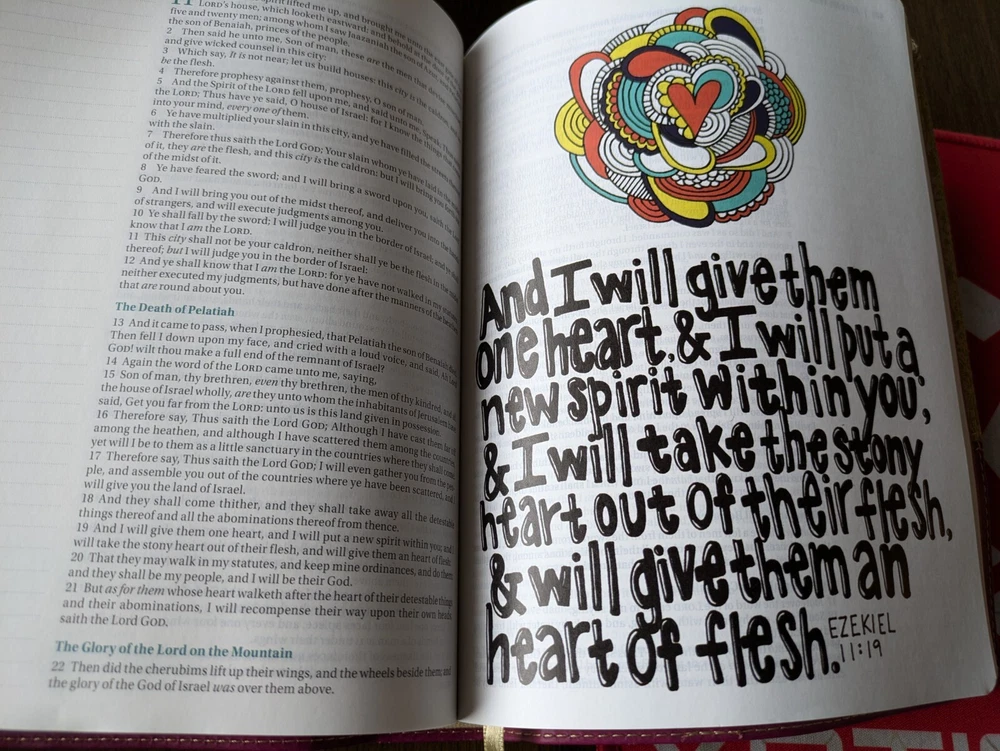 11 spirit lifted me up, and brought me unto the
LORD's house, which looketh eastward: and behold at the door
five and twenty men; among whom I saw Jaazaniah the son of Azur,
the son of Benaiah, princes of the people.
2 Then said he unto me, Son of man, these are the men that devise
and give wicked counsel in this city:
3 Which say, It is not near; let us build houses: this city is the caldron,
be the flesh.
4 Therefore prophesy against them, prophesy, O son of man.
5 And the Spirit of the LORD fell upon me, and said unto me, Speak;
the LORD; Thus have ye said, O house of Israel: for I know the things that
into your mind, every one of them.
6 Ye have multiplied your slain in this city, and ye have filled the streets
with the slain.
7 Therefore thus saith the Lord GOD; Your slain whom ye have laid in the midst
of it, they are the flesh, and this city is the caldron: but I will bring you forth
of the midst of it.
8 Ye have feared the sword; and I will bring a sword upon you, saith the Lord
GOD.
9 And I will bring you out of the midst thereof, and deliver you into the hands
of strangers, and will execute judgments among you.
10 Ye shall fall by the sword; I will judge you in the border of Israel; and ye shall
know that I am the LORD.
11 This city shall not be your caldron, neither shall ye be the flesh in the midst
thereof; but I will judge you in the border of Israel:
12 And ye shall know that I am the LORD: for ye have not walked in my statutes,
neither executed my judgments, but have done after the manners of the heathen
that are round about you.
The Death of Pelatiah
13 And it came to pass, when I prophesied, that Pelatiah the son of Benaiah died.
Then fell I down upon my face, and cried with a loud voice, and said, Ah Lord
GOD! wilt thou make a full end of the remnant of Israel?
14 Again the word of the LORD came unto me, saying,
15 Son of man, thy brethren, even thy brethren, the men of thy kindred, and all
the house of Israel wholly, are they unto whom the inhabitants of Jerusalem have
said, Get you far from the LORD: unto us is this land given in possession.
16 Therefore say, Thus saith the Lord GOD; Although I have cast them far off
among the heathen, and although I have scattered them among the countries,
yet will I be to them as a little sanctuary in the countries where they shall come.
17 Therefore say, Thus saith the Lord GOD; I will even gather you from the peo-
ple, and assemble you out of the countries where ye have been scattered, and I
will give you the land of Israel.
18 And they shall come thither, and they shall take away all the detestable
things thereof and all the abominations thereof from thence.
19 And I will give them one heart, and I will put a new spirit within you; and I
will take the stony heart out of their flesh, and will give them an heart of flesh:
20 That they may walk in my statutes, and keep mine ordinances, and do them:
and they shall be my people, and I will be their God.
21 But as for them whose heart walketh after the heart of their detestable things
and their abominations, I will recompense their way upon their own heads,
saith the Lord GOD.
The Glory of the Lord on the Mountain
22 Then did the cherubims lift up their wings, and the wheels beside them; and
the glory of the God of Israel was over them above.
And I will give them
one heart, & I will put a
new spirit within you;
& I will take the stony
heart out of their flesh,
& will give them an
heart of flesh.
EZEKIEL
11:19